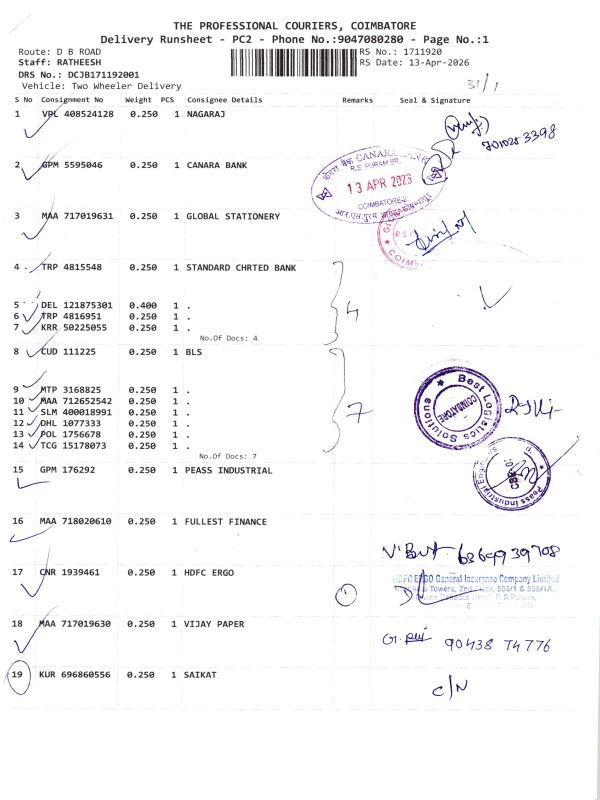 THE PROFESSIONAL COURIERS, COIMBATORE
Delivery Runsheet - PC2 - Phone No.:9047080280 - Page No.:1
Route: D B ROAD
RS No.: 1711920
Staff: RATHEESH
RS Date: 13-Apr-2026
DRS No.: DCJB171192001
Vehicle: Two Wheeler Delivery
31/1
S No Consignment No Weight PCS Consignee Details Remarks Seal & Signature
1 VPL 408524128 0.250 1 NAGARAJ
2 GPM 5595046 0.250 1 CANARA BANK
CANARA BANK
R.S. PURAM BR.
13 APR 2026
COIMBATORE-2
3 MAA 717019631 0.250 1 GLOBAL STATIONERY
4 TRP 4815548 0.250 1 STANDARD CHRTED BANK
5 DEL 121875301 0.400 1 .
6 TRP 4816951 0.250 1 .
7 KRR 50225055 0.250 1 .
4
No.Of Docs: 4
8 CUD 111225 0.250 1 BLS
9 MTP 3168825 0.250 1 .
10 MAA 712652542 0.250 1 .
11 SLM 400018991 0.250 1 .
12 DHL 1077333 0.250 1 .
13 POL 1756678 0.250 1 .
14 TCG 15178073 0.250 1 .
7
Best Logistics Solutions
COIMBATORE
No.Of Docs: 7
15 GPM 176292 0.250 1 PEASS INDUSTRIAL
Peass Industrial
16 MAA 718020610 0.250 1 FULLEST FINANCE
17 CNR 1939461 0.250 1 HDFC ERGO
HDFC ERGO General Insurance Company Limited
18 MAA 717019630 0.250 1 VIJAY PAPER
90438 74776
19 KUR 696860556 0.250 1 SAIKAT
C/N